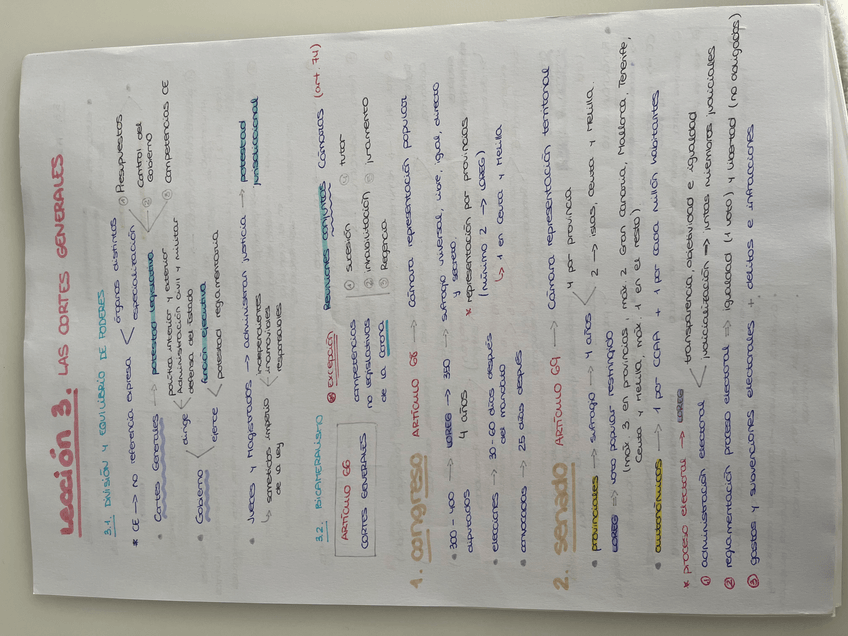 Lección 3. LAS CORTES GENERALES
3.1. DIVISIÓN Y EQUILIBRIO DE PODERES
* CE → no referencia expresa < órganos distintos
especialización
• Cortes Generales → potestad legislativa
① Presupuestos
② Control del Gobierno
③ Competencias CE
• Gobierno < dirige
política interior y exterior
Administración civil y militar
defensa del Estado
ejerce < función ejecutiva
potestad reglamentaria
• Jueces y Magistrados → administran justicia → potestad
jurisdiccional
↳ sometidos imperio
de la ley
independientes
inamovibles
responsables
3.2. BICAMERALISMO
ARTÍCULO 66
CORTES GENERALES
⊗ excepción
competencias
no legislativas
de la Corona
Reuniones conjuntas Cámaras (art. 74)
① sucesión ④ tutor
② inhabilitación ⑤ juramento
③ Regencia
1. congreso ARTÍCULO 68 → Cámara representación popular
• 300 - 400 → LOREG → 350 → sufragio universal, libre, igual, directo
diputados 4 años y secreto
* representación por provincias
(mínimo 2 → LOREG)
↳ 1 en Ceuta y Melilla
• elecciones → 30 - 60 días después
del mandato
• convocados → 25 días después
2. senado ARTÍCULO 69 → Cámara representación territorial
• provinciales → sufragio → 4 años < 4 por provincia
2 → islas, Ceuta y Melilla.
LOREG → voto popular restringido
(máx 3 en provincias, máx 2 Gran Canaria, Mallorca, Tenerife,
Ceuta y Melilla, máx 1 en el resto)
• autonómicos → 1 por CCAA + 1 por cada millón habitantes
* proceso electoral → LOREG
① administración electoral < transparencia, objetividad e igualdad
judicialización → juntas miembros judiciales
② reglamentación proceso electoral ⇒ igualdad (1 voto) y libertad (no obligados)
③ gastos y subvenciones electorales + delitos e infracciones